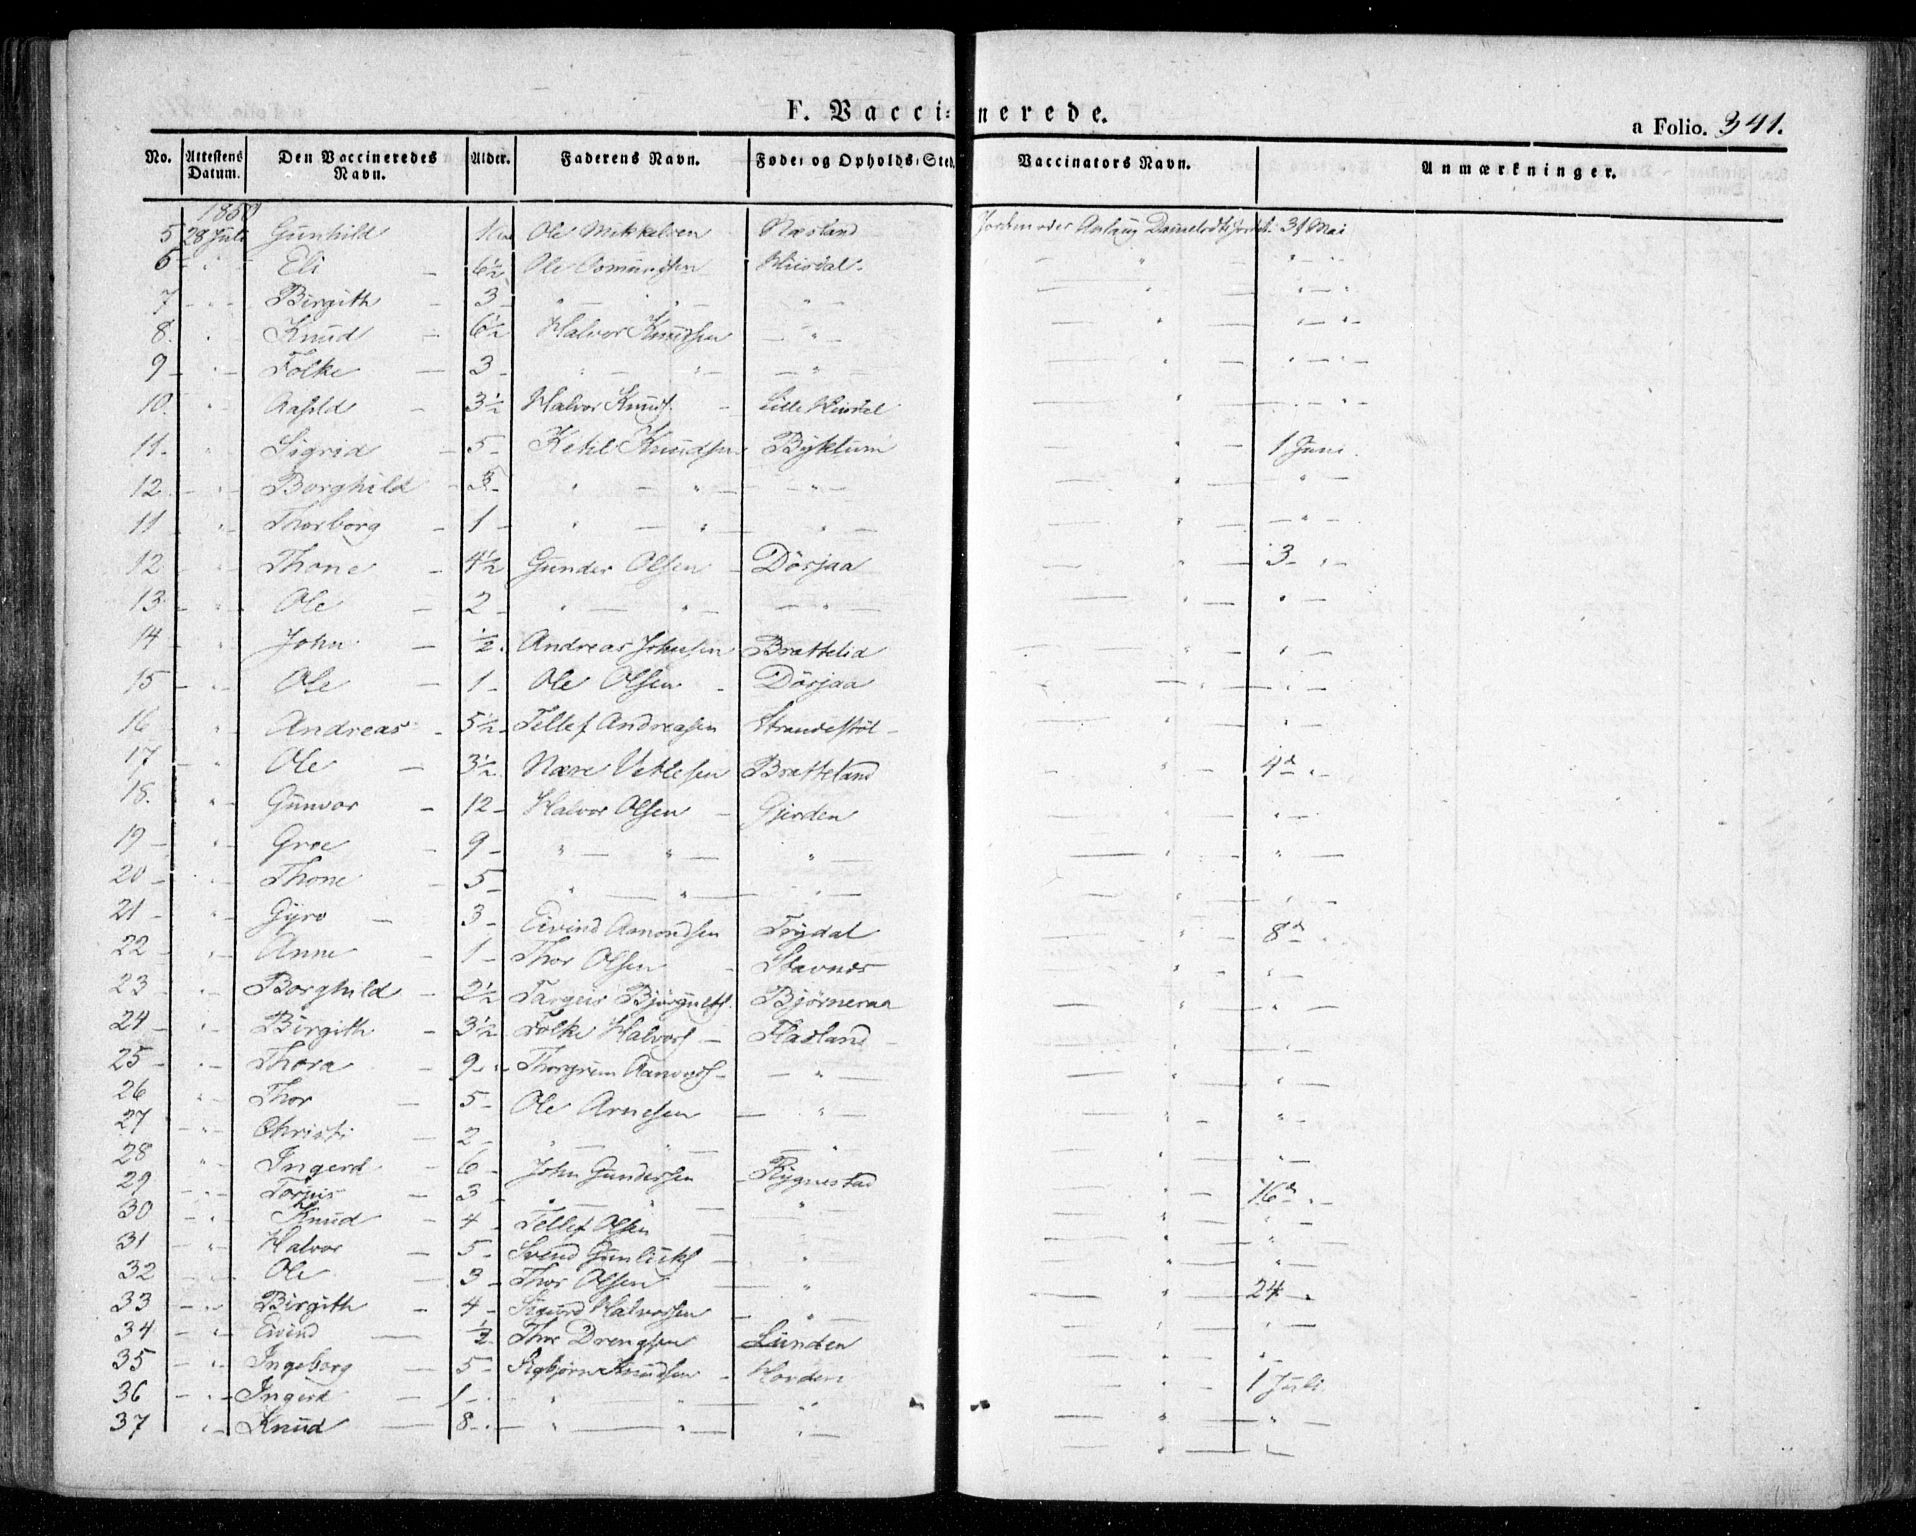 F. Vaccinerede.
a Folio. 341.
No. Attestens Datum. Den Vaccineredes Navn. Alder. Faderens Navn. Føde- og Opholds-Sted. Vaccinators Navn. Anmærkninger.
1850
5 28 Juli Gunhild Ole Mikkelsen Næsland Jordemoder 31 Mai
6 " Eli 6½ Ole Osmundsen Huisdal " "
7 " Birgith 3 " " " " "
8 " Knud 6½ Halvor Knudsen " " "
9 " Folke 3 " " " " "
10 " Aasild 3½ Halvor Knuds. Lille Huisdal " "
11 " Sigrid 5 Ketil Knudsen Bykluim " 1 Juni
12 " Borghild 3 " " " "
11 " Thorborg 1 " " " " "
12 " Thone 4½ Gunder Olsen Dösjaa " 3 "
13 " Ole 2 " " " " "
14 " John ½ Andreas Johnsen Brattelid " "
15 " Ole 1 Ole Olsen Dösjaa " "
16 " Andreas 5½ Tellef Andreasen Strandestöl " "
17 " Ole 3½ Nære Vetlesen Bratteland " 4d "
18 " Gunvor 12 Halvor Olsen Gjerden " "
19 " Groe 9 " " " " "
20 " Thone 5 " " " " "
21 " Gyro 3 Eivind Amondsen Trydal " 8d "
22 " Anne 1 Thor Olsen Stavnes " "
23 " Borghild 2½ Targeir Björgulfs. Björneraa " "
24 " Birgith 3½ Folke Halvors Flatland " "
25 " Thora 9 Thorgrim Aanunds " " "
26 " Thor 5 Ole Arnesen " " "
27 " Christi 2 " " " "
28 " Ingerd 6 John Gundersen Rygnestad " "
29 " Torjus 3 " " " " 16d "
30 " Knud 4 Tellef Olsen " "
31 " Halvor 5 Svend Gunleiks " " "
32 " Ole 3 Thor Olsen " " "
33 " Birgith 4 Sigurd Halvorsen " " 24 "
34 " Eivind ½ Thor Drengsen Lunden " "
35 " Ingeborg 5 Sigbjörn Knudsen Hovden " "
36 " Ingerd 1 " " " " 1 Juli
37 " Knud 8 " " " " "